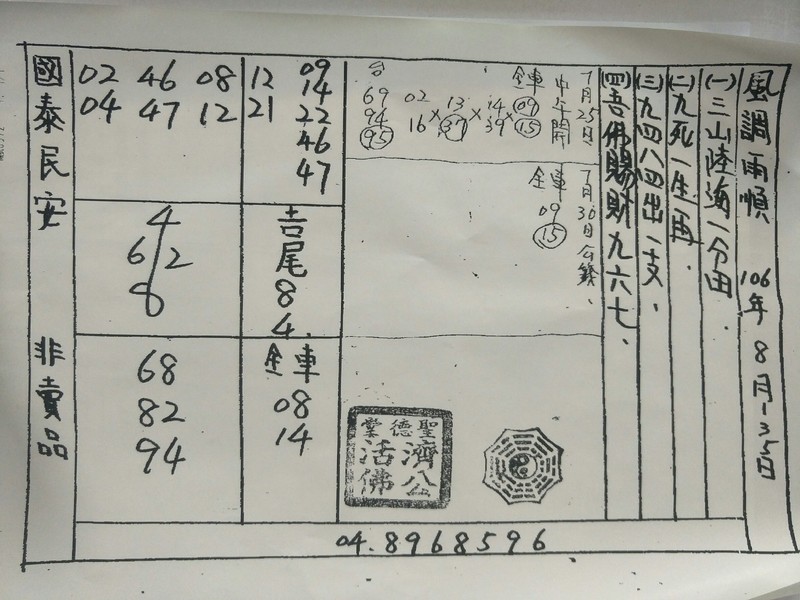 風調雨順 106年 8月1-3.5日
(一)三山陸海一分田.
(二)九死一生一再.
(三)九四八四出一支.
(四)吾佛賜財九六七.
7月25日
中午開
全車
09
15
14
39
13
37
02
16
台
69
94
95
7月30日公籤.
全車
09
15
聖德堂
濟公
活佛
12 09
21 14
22
46
47
吉尾
8
4.
全車
08
14
02 46 08
04 47 12
4
6/2
8
68
82
94
國泰民安 非賣品
04.8968596